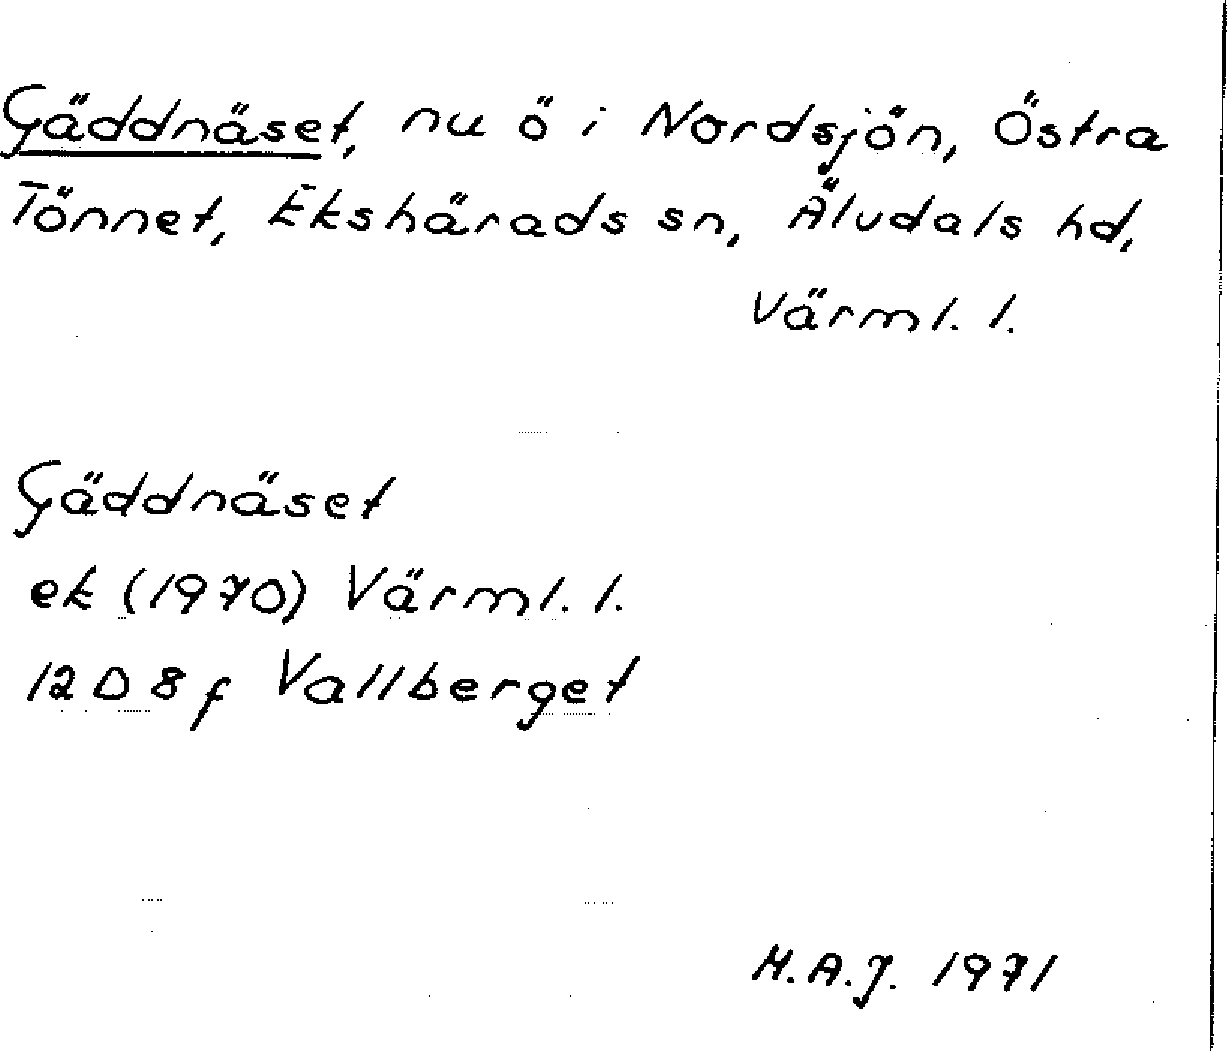 Gäddnäset, nu ö i Nordsjön, Östra
Tönnet, Ekshärads sn, Älvdals hd,
Värml. l.
Gäddnäset
ek (1970) Värml. l.
12 D 8 f Vallberget
H.A.J. 1971